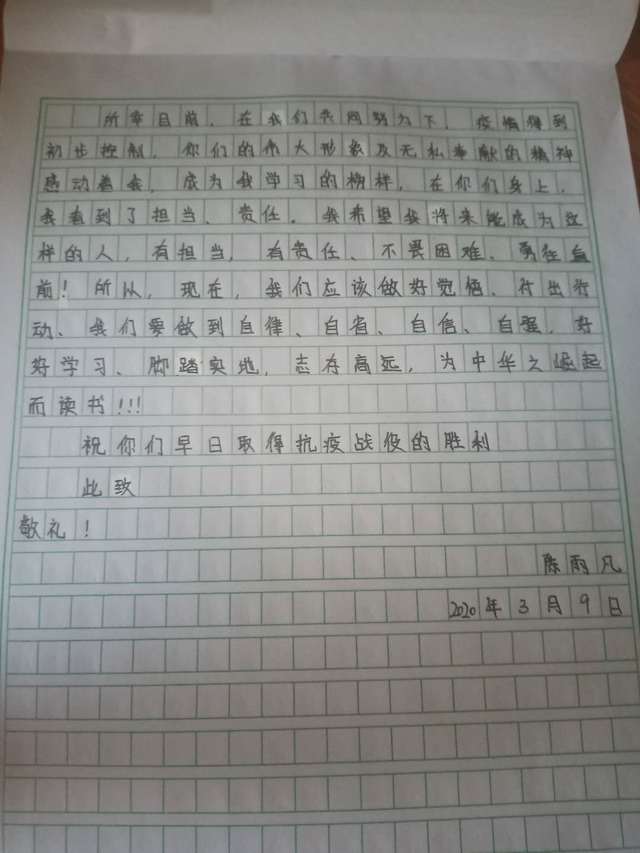 所幸目前，在我们共同努力下，疫情得到
初步控制，你们的伟大形象及无私奉献的精神
感动着我，成为我学习的榜样，在你们身上，
我看到了担当、责任。我希望我将来能成为这
样的人，有担当，有责任、不畏困难、勇往直
前！所以，现在，我们应该做好觉悟、付出行
动、我们要做到自律、自省、自信、自强，好
好学习、脚踏实地，志存高远，为中华之崛起
而读书！！！
祝你们早日取得抗疫战役的胜利
此致
敬礼！
陈雨凡
2020年3月9日